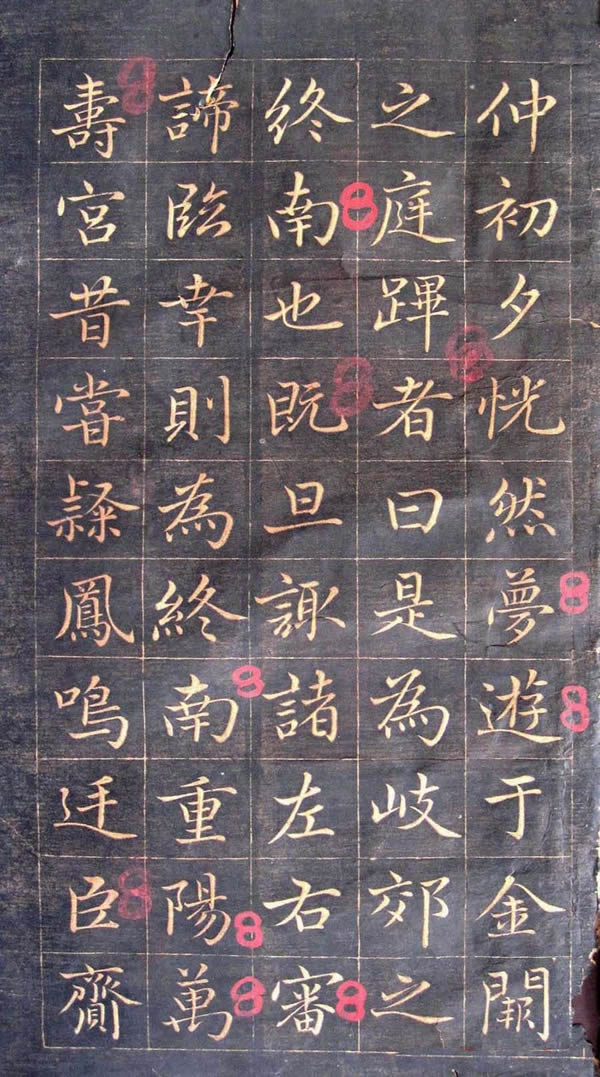 仲初夕恍然夢遊于金闕
之庭蹕者曰是為岐郊之
终南也既旦諏諸左右審
諦臨幸則為終南重陽萬
壽宮昔嘗隸鳳鳴廷臣齎